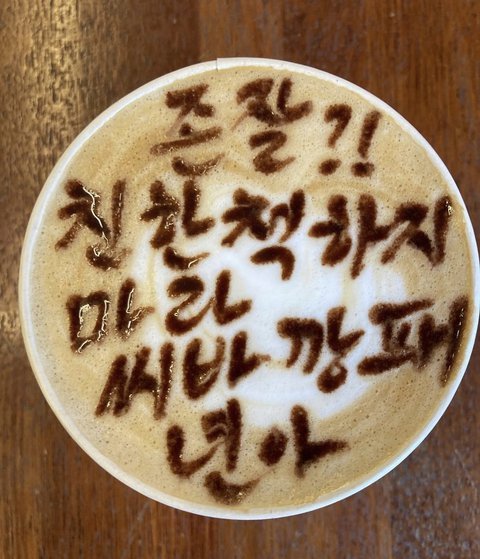 존잘?!
친한척하지
마라
씨바깡패
년아